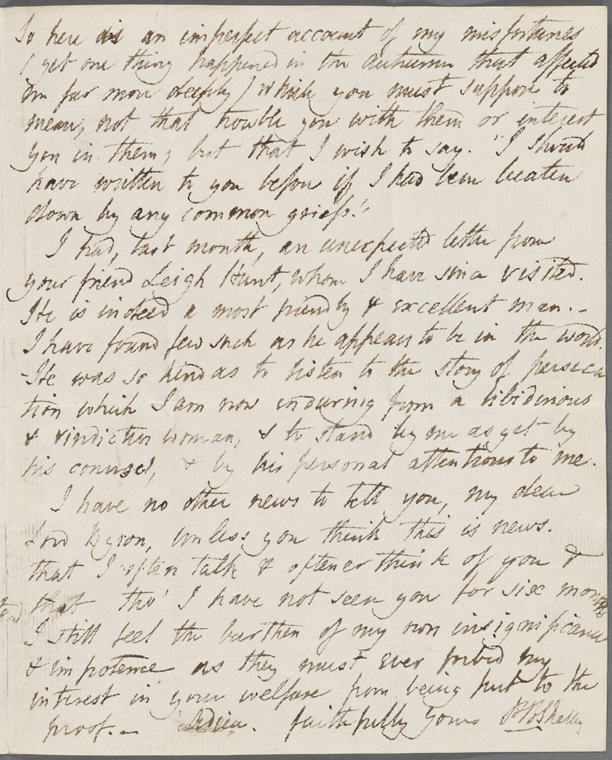 So here is an imperfect account of my misfortunes
(yet one thing happened in the autumn that affected
me far more deeply) which you must suppose to
mean, not that trouble you with them or interest
you in them; but that I wish to say. "I should
have written to you before if I had been beaten
down by any common griefs."
I had, last month, an unexpected letter from
your friend Leigh Hunt, whom I have since visited.
He is indeed a most friendly & excellent man.-
I have found few such as he appears to be in the world.
-He was so kind as to listen to the story of persecu
tion which I am now enduring from a libidinous
& vindictive woman, & to stand by me as yet by
his counsel, & by his personal attentions to me.
I have no other news to tell you, my dear
Lord Byron, unless you think this is news.
that I often talk & oftener think of you &
that tho' I have not seen you for six months
I still feel the burthen of my own insignificance
& impotence as they must ever forbid my
interest in your welfare from being put to the
proof.— Adieu. faithfully yours PBShelley